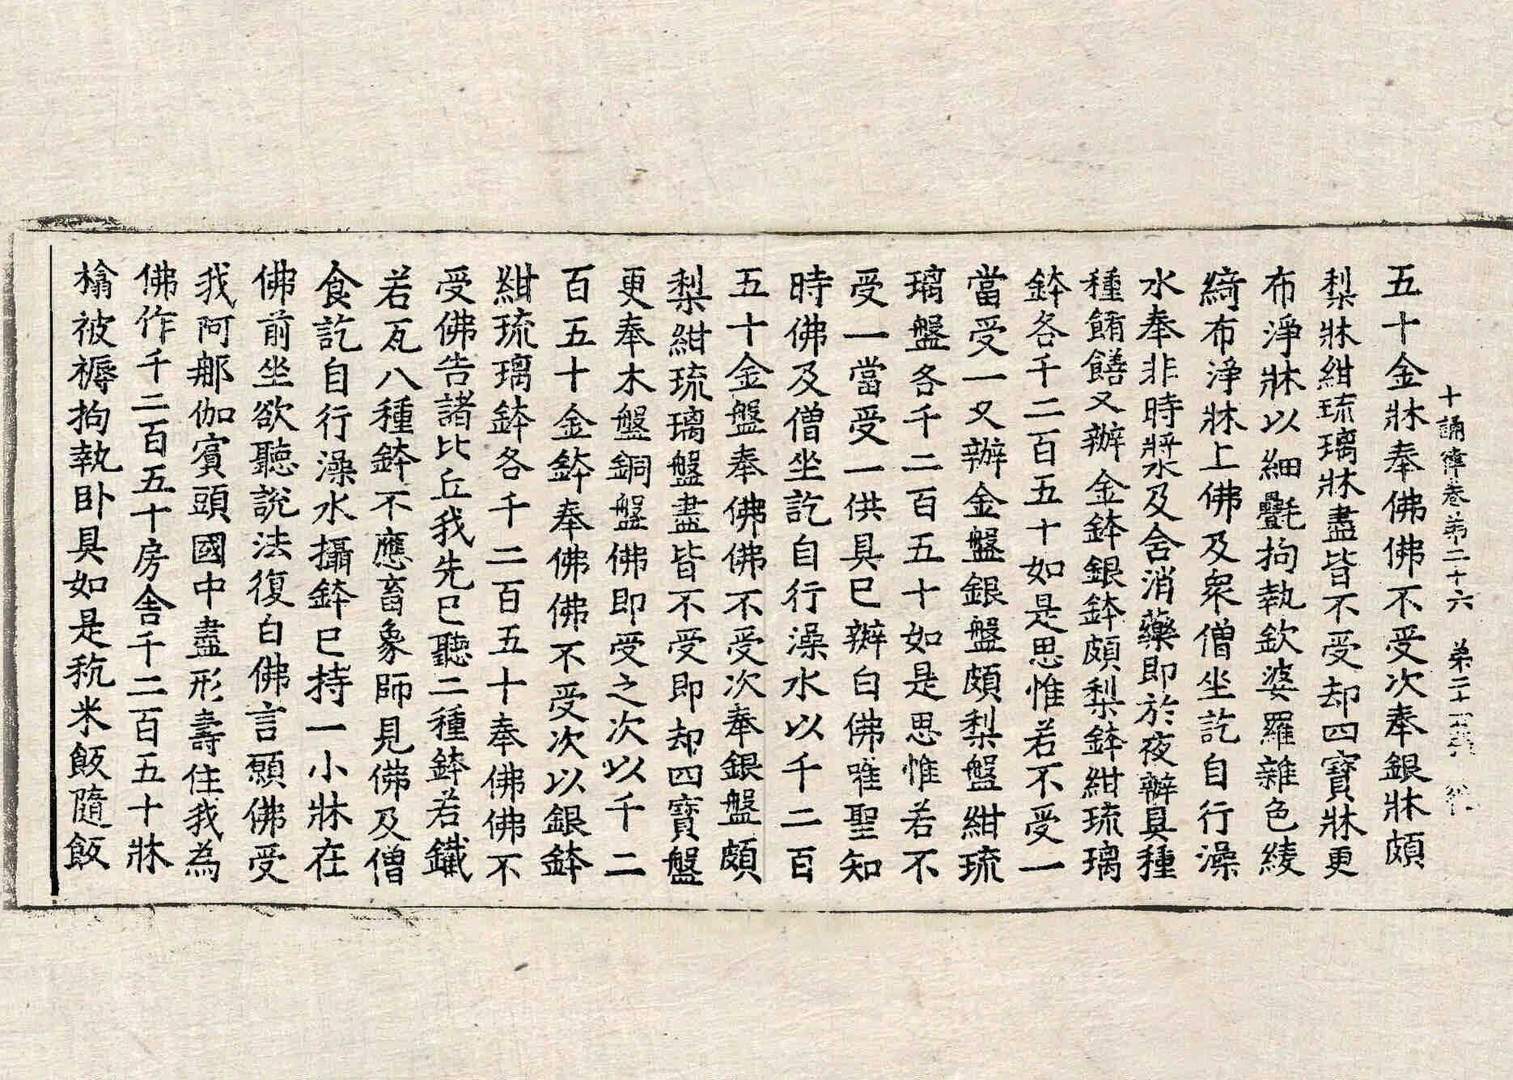 十誦律卷第二十六 第二十一張
五十金牀奉佛佛不受次奉銀牀頗
梨牀紺琉璃牀盡皆不受却四寶牀更
布淨牀以細㲲拘執欽婆羅雜色綾
綺布淨牀上佛及衆僧坐訖自行澡
水奉非時漿水及含消藥即於夜辦具種
種餚饍又辦金鉢銀鉢頗梨鉢紺琉璃
鉢各千二百五十如是思惟若不受一
當受一又辦金盤銀盤頗梨盤紺琉
璃盤各千二百五十如是思惟若不
受一當受一供具已辦白佛唯聖知
時佛及僧坐訖自行澡水以千二百
五十金盤奉佛佛不受次奉銀盤頗
梨紺琉璃盤盡皆不受即却四寶盤
更奉木盤銅盤佛即受之次以千二
百五十金鉢奉佛佛不受次以銀鉢
紺琉璃鉢各千二百五十奉佛佛不
受佛告諸比丘我先已聽二種鉢若鐵
若瓦八種鉢不應畜象師見佛及僧
食訖自行澡水攝鉢已持一小牀在
佛前坐欲聽說法復白佛言願佛受
我阿那伽賓頭國中盡形壽住我為
佛作千二百五十房舍千二百五十牀
榻被褥拘執卧具如是秔米飯隨飯